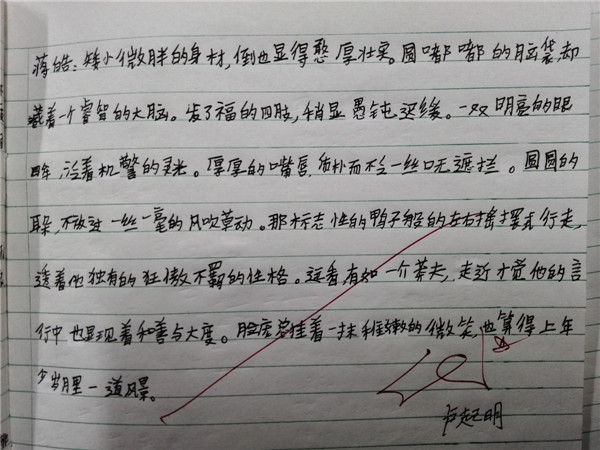 蒋皓：矮小微胖的身材，倒也显得憨厚壮实。圆嘟嘟的脑袋，却
藏着一个睿智的大脑。发了福的四肢，稍显愚钝迟缓。一双明亮的眼
眸，泛着机警的灵光。厚厚的嘴唇，质朴而不会一丝口无遮拦。圆圆的
耳朵，不放过一丝一毫的风吹草动。那标志性的鸭子般的左右摇摆式行走，
透着他独有的狂傲不羁的性格。远看有如一个莽夫，走近才觉他的言
行中也显现着和善与大度。脸庞总挂着一抹稚嫩的微笑，也算得上年
少岁月里一道风景。
卢起明